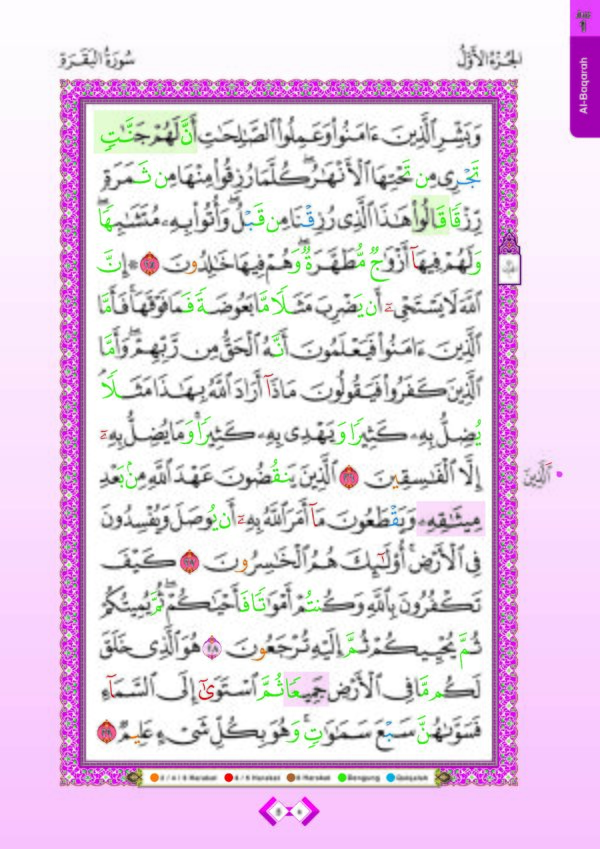 سُورَةُ البَقَرَةِ
الجُزْءُ الأَوَّلُ
Al-Baqarah
وَبَشِّرِ ٱلَّذِينَ ءَامَنُوا۟ وَعَمِلُوا۟ ٱلصَّـٰلِحَـٰتِ أَنَّ لَهُمْ جَنَّـٰتٍ
تَجْرِى مِن تَحْتِهَا ٱلْأَنْهَـٰرُ ۖ كُلَّمَا رُزِقُوا۟ مِنْهَا مِن ثَمَرَةٍ
رِّزْقًا قَالُوا۟ هَـٰذَا ٱلَّذِى رُزِقْنَا مِن قَبْلُ ۖ وَأُتُوا۟ بِهِۦ مُتَشَـٰبِهًا ۖ
وَلَهُمْ فِيهَآ أَزْوَٰجٌ مُّطَهَّرَةٌ ۖ وَهُمْ فِيهَا خَـٰلِدُونَ ۞ إِنَّ
ٱللَّهَ لَا يَسْتَحْىِۦٓ أَن يَضْرِبَ مَثَلًا مَّا بَعُوضَةً فَمَا فَوْقَهَا ۚ فَأَمَّا
ٱلَّذِينَ ءَامَنُوا۟ فَيَعْلَمُونَ أَنَّهُ ٱلْحَقُّ مِن رَّبِّهِمْ ۖ وَأَمَّا
ٱلَّذِينَ كَفَرُوا۟ فَيَقُولُونَ مَاذَآ أَرَادَ ٱللَّهُ بِهَـٰذَا مَثَلًا ۘ
يُضِلُّ بِهِۦ كَثِيرًا وَيَهْدِى بِهِۦ كَثِيرًا ۚ وَمَا يُضِلُّ بِهِۦٓ
إِلَّا ٱلْفَـٰسِقِينَ ٱلَّذِينَ يَنقُضُونَ عَهْدَ ٱللَّهِ مِنۢ بَعْدِ
مِيثَـٰقِهِۦ وَيَقْطَعُونَ مَآ أَمَرَ ٱللَّهُ بِهِۦٓ أَن يُوصَلَ وَيُفْسِدُونَ
فِى ٱلْأَرْضِ ۚ أُو۟لَـٰٓئِكَ هُمُ ٱلْخَـٰسِرُونَ كَيْفَ
تَكْفُرُونَ بِٱللَّهِ وَكُنتُمْ أَمْوَٰتًا فَأَحْيَـٰكُمْ ۖ ثُمَّ يُمِيتُكُمْ
ثُمَّ يُحْيِيكُمْ ثُمَّ إِلَيْهِ تُرْجَعُونَ ٢٨ هُوَ ٱلَّذِى خَلَقَ
لَكُم مَّا فِى ٱلْأَرْضِ جَمِيعًا ثُمَّ ٱسْتَوَىٰٓ إِلَى ٱلسَّمَآءِ
فَسَوَّىٰهُنَّ سَبْعَ سَمَـٰوَٰتٍ ۚ وَهُوَ بِكُلِّ شَىْءٍ عَلِيمٌ
ٱلَّذِينَ
2 / 4 / 6 Harakat 4 / 5 Harakat 6 Harakat Dengung Qalqalah